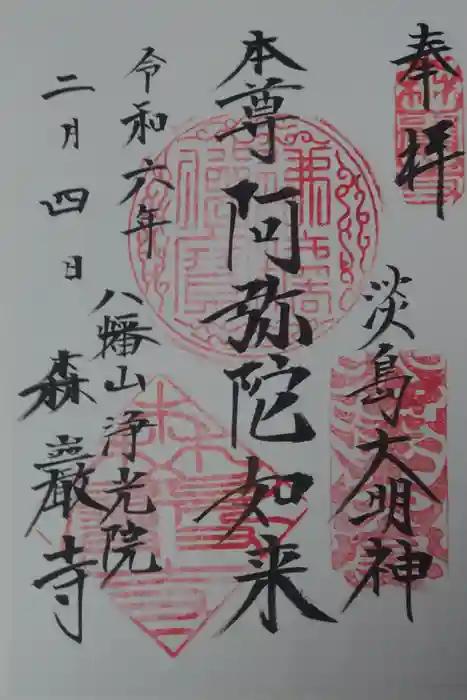 奉拝
淡島大明神
本尊阿弥陀如来
令和六年
二月四日
八幡山浄光院
森巖寺